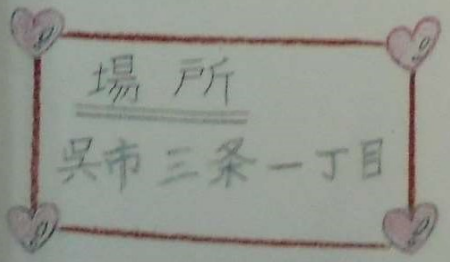 場所
呉市三条一丁目